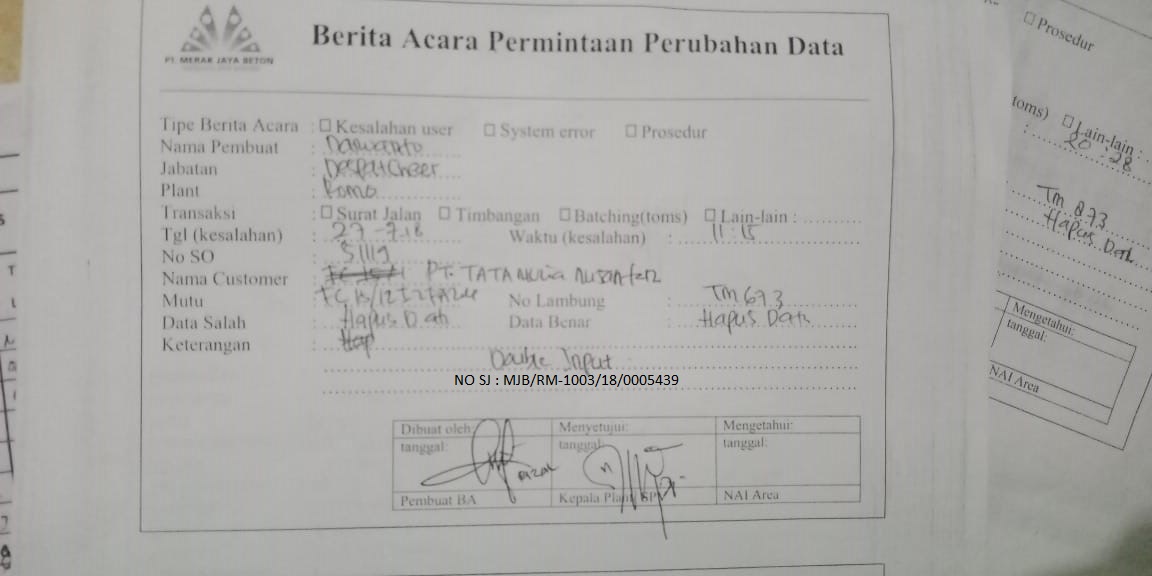 PT. MERAK JAYA BETON
Berita Acara Permintaan Perubahan Data
Tipe Berita Acara : Kesalahan user System error Prosedur
Nama Pembuat : Darwanto
Jabatan : Despatcheer
Plant : Romo
Transaksi : Surat Jalan Timbangan Batching(toms) Lain-lain :
Tgl (kesalahan) : 27-7-18 Waktu (kesalahan) : 11:15
No SO :
Nama Customer : PT. TATA Mulia Nusantara
Mutu : No Lambung : TM 673
Data Salah : Hapus Data Data Benar : Hapus Data
Keterangan : Hap
Double Input
NO SJ : MJB/RM-1003/18/0005439
Dibuat oleh: Menyetujui: Mengetahui:
tanggal: tanggal: tanggal:
Pembuat BA Kepala Plant NAI Area
Prosedur
toms) Lain-lain :
: 20:28
Tm 873
Hapus Data
Mengetahui:
tanggal:
NAI Area